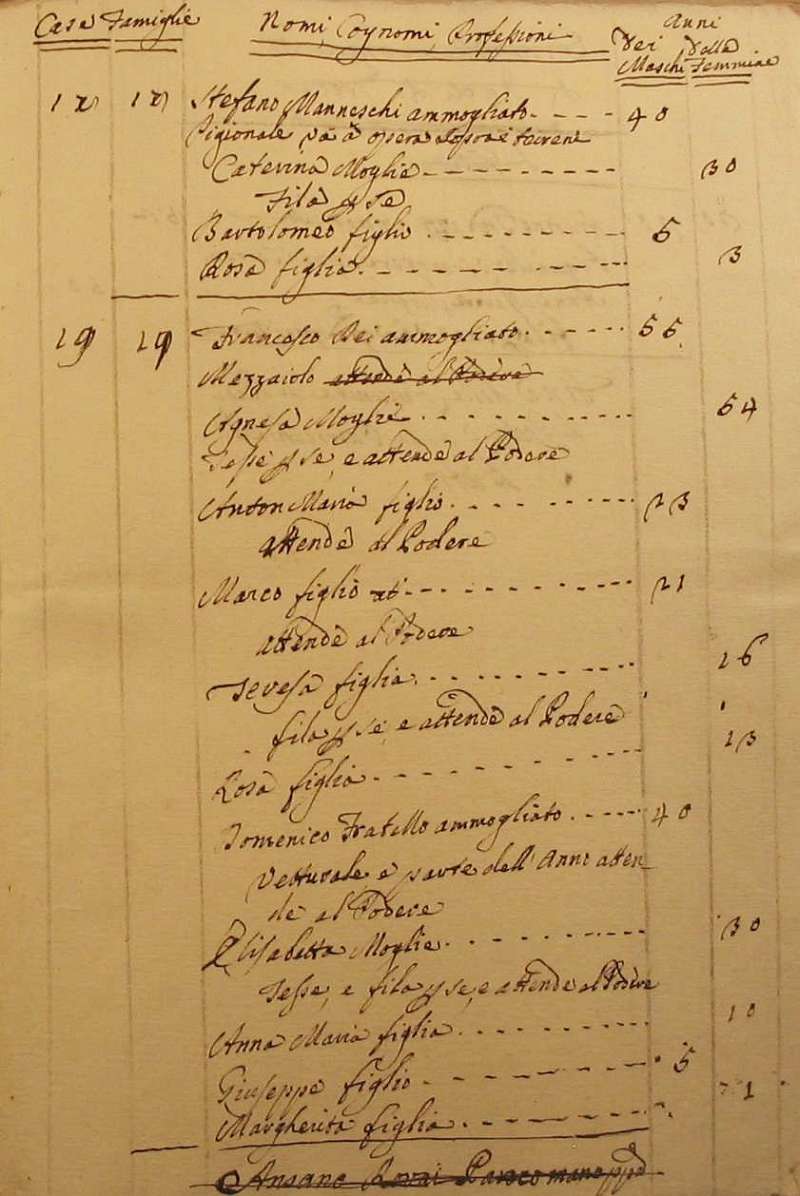 Case Famiglie Nomi, Cognomi, Professioni Anni
Dei Maschi delle Femmine
18 18 Stefano Manneschi ammogliato 40
Pigionale va a opera sopra i terreni
Caterina Moglie 30
Fila p se
Bartolomeo figlio 5
Rosa figlia 3
19 19 Francesco Dei ammogliato 55
Mezzaiolo attende al Podere
Agnesa Moglie 54
Tesse p se, e attende al Podere
Anton Maria figlio 23
attende al Podere
Marco figlio at 21
attende al Podere
Teresa figlia 16
fila p se, e attende al Podere
Rosa figlia 13
Domenico Fratello ammogliato 40
Vetturale e parte dell'Anno atten
de al Podere
Elisabetta Moglie 30
Tesse, e fila p se, e attende al Podere
Anna Maria figlia 10
Giuseppe figlio 5
Margherita figlia 1
Ansano